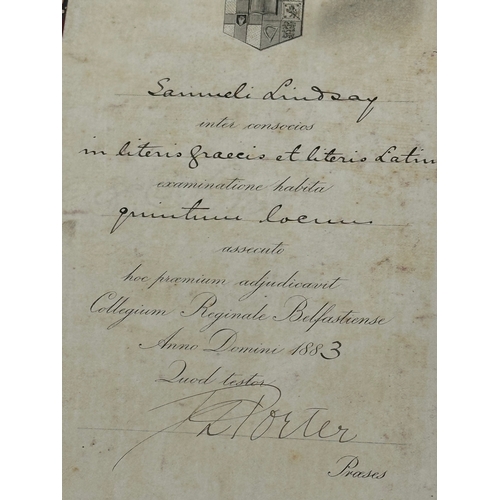 Samueli Lindsay
inter consocios
in literis graecis et literis Latin
examinatione habita
quintum locum
assecuto
hoc præmium adjudicavit
Collegium Reginale Belfastiense
Anno Domini 1883
Quod testor
Porter
Præses